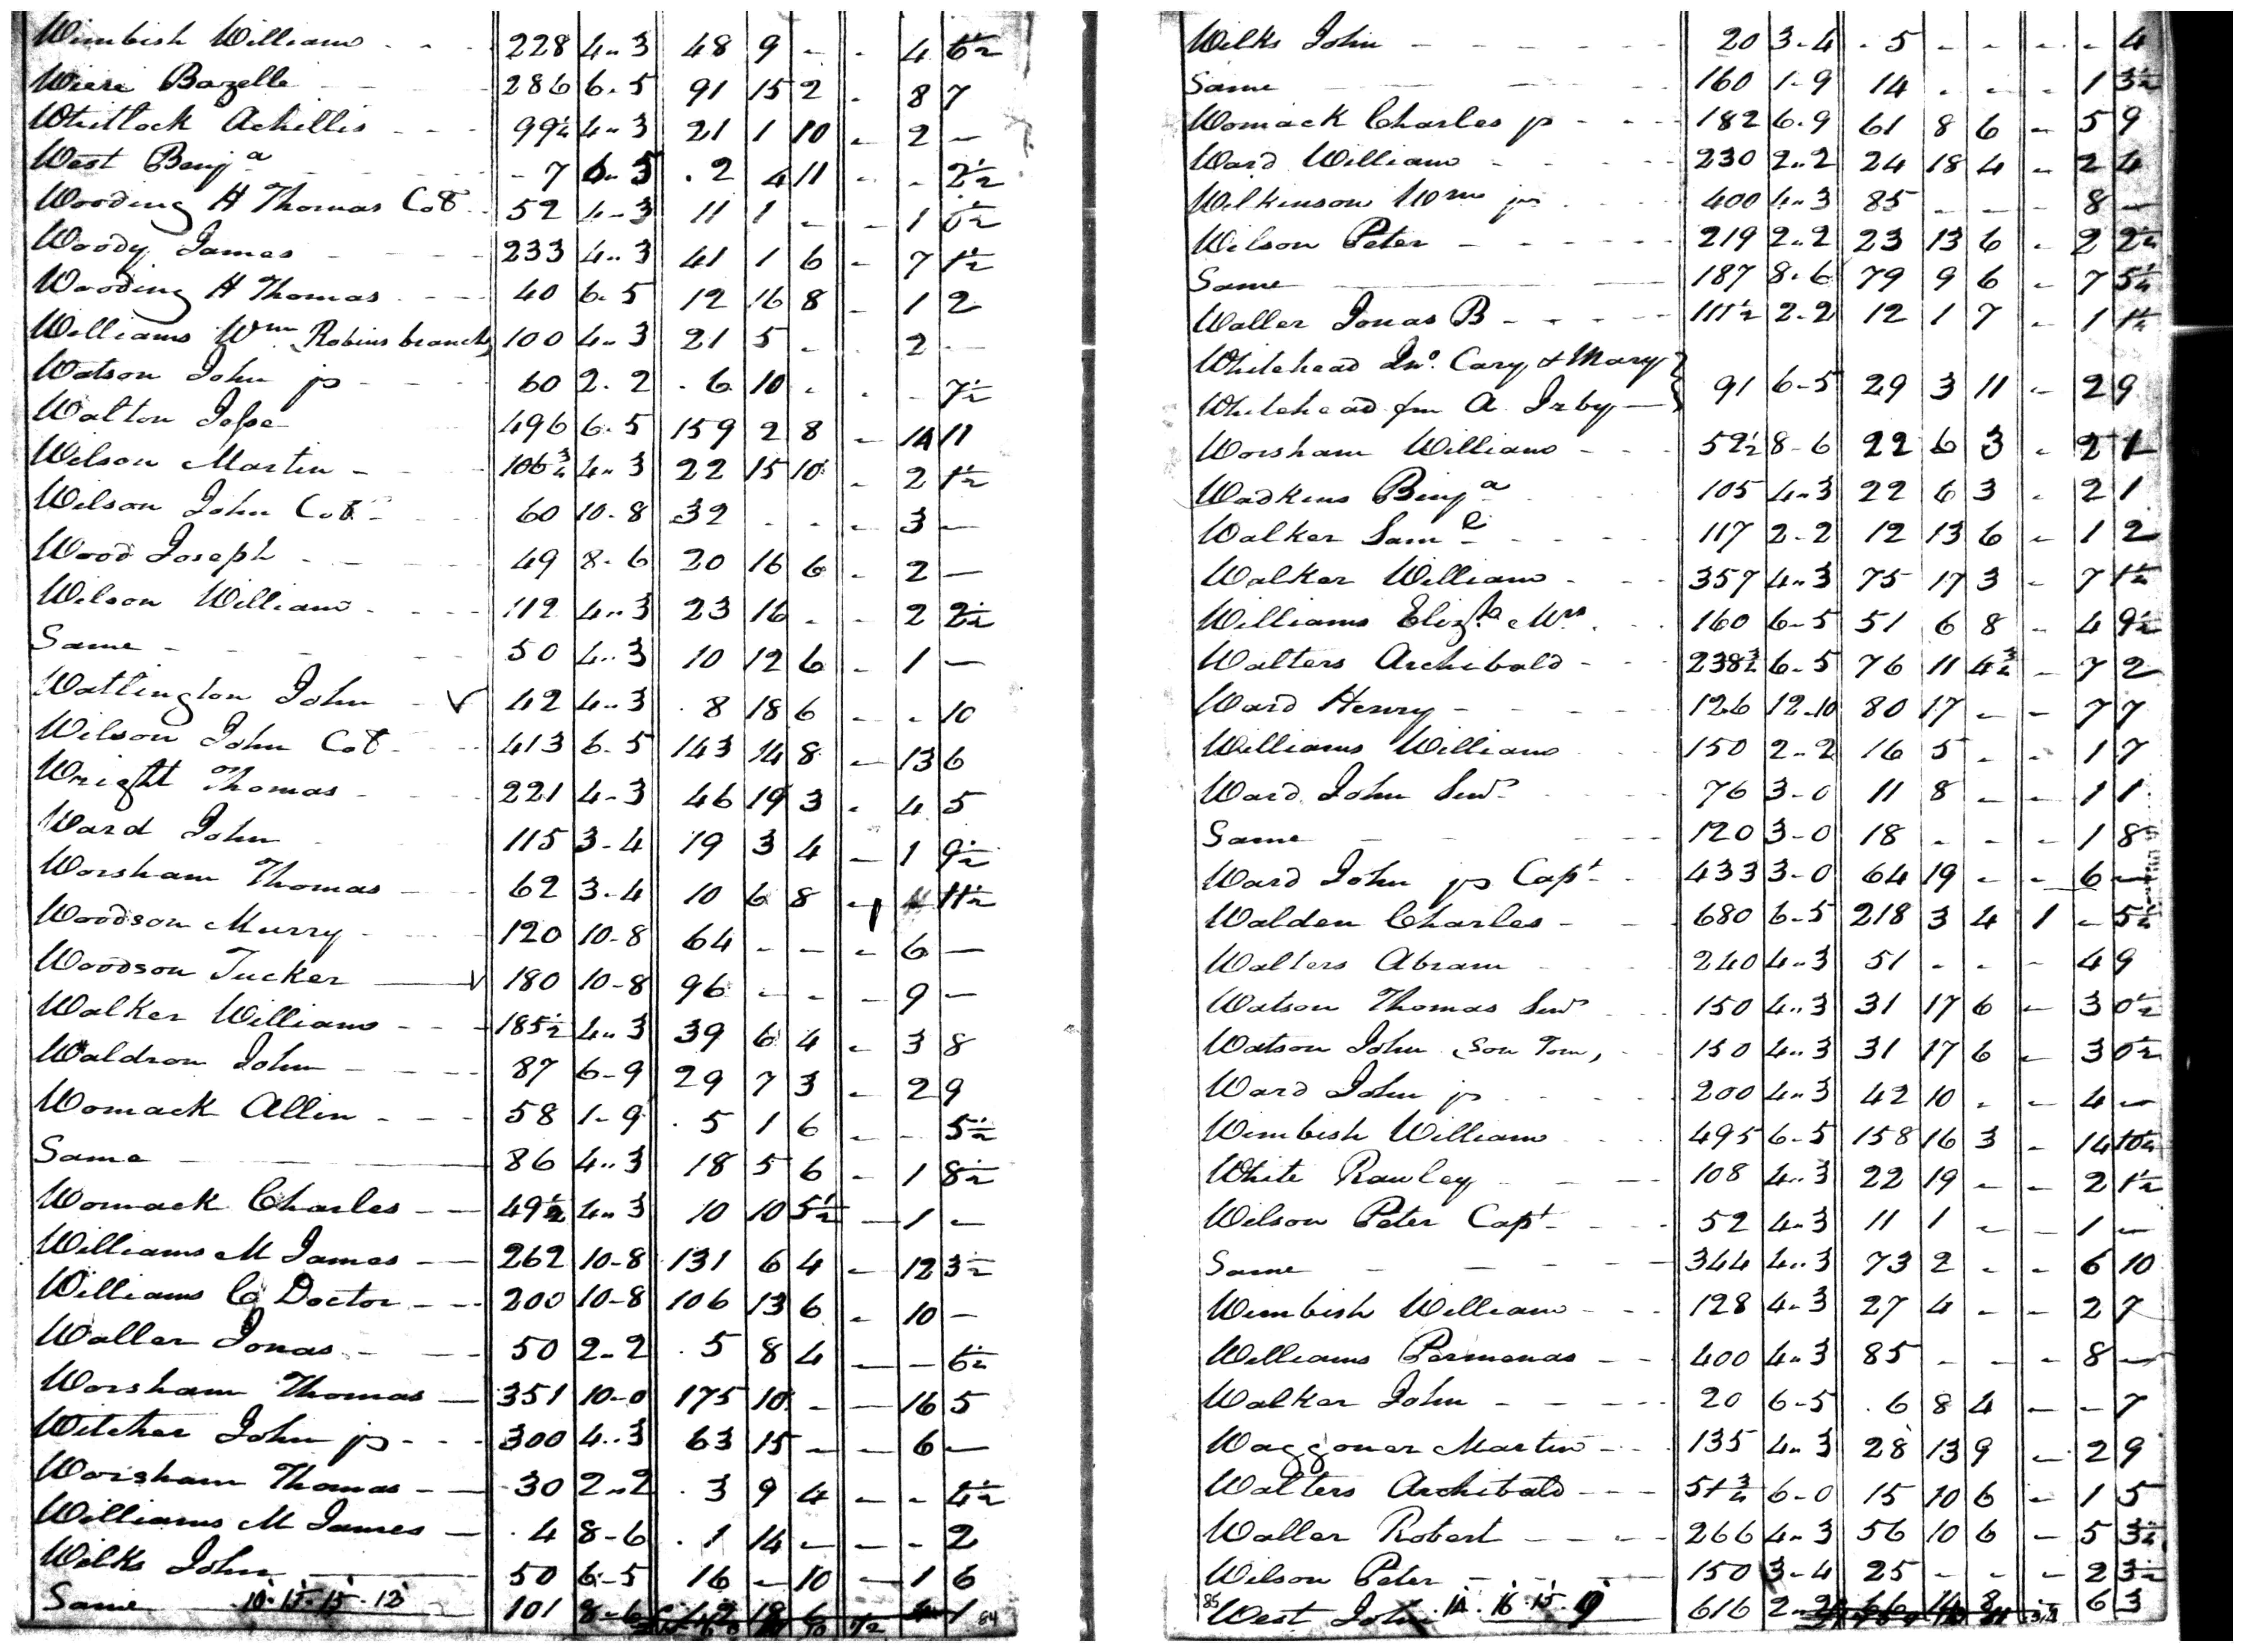 Wimbish William - - - 228 4-3 48 9 - - 4 6½
Wieri Bazelle - - 286 6-5 91 15 2 - 8 7
Whitlock Achillis - - - 99¼ 4-3 21 1 10 - 2 -
West Benjᵃ - 7 6-5 2 4 11 - - 2½
Wooding H Thomas Colᵒ 52 4-3 11 1 - - 1 0½
Woody James - - - 233 4-3 41 1 6 - 7 1½
Wooding H Thomas - - - 40 6-5 12 16 8 - 1 2
Williams Wᵐ Robins branch 100 4-3 21 5 - - 2 -
Watson John jr - - - 60 2-2 6 10 - - - 7½
Walton Jesse 496 6-5 159 2 8 - 14 11
Wilson Martin - - 106¾ 4-3 22 15 10 - 2 1½
Wilson John Col - 60 10-8 32 - - - 3 -
Wood Joseph - - - 49 8-6 20 16 6 - 2 -
Wilson William - - - 112 4-3 23 16 - - 2 2½
Same - - - 50 4-3 10 12 6 - 1 -
Watlington John - ✓ 42 4-3 8 18 6 - - 10
Wilson John Col - 413 6-5 143 14 8 - 13 6
Wright Thomas - - 221 4-3 46 19 3 - 4 5
Ward John 115 3-4 19 3 4 - 1 9½
Worsham Thomas - - 62 3-4 10 6 8 - 1 11½
Woodson Murry - - - 120 10-8 64 - - - 6 -
Woodson Tucker — ✓ 180 10-8 96 - - - 9 -
Walker William - - - 185½ 4-3 39 6 4 - 3 8
Waldron John - - - 87 6-9 29 7 3 - 2 9
Womack Allin - - - 58 1-9 5 1 6 - - 5½
Same — 86 4-3 18 5 6 - 1 8½
Womack Charles - - 49½ 4-3 10 10 5½ - 1 -
Williams M James - - 262 10-8 131 6 4 - 12 3½
Williams C Doctor - - 200 10-8 106 13 6 - 10 -
Waller Jonas - - 50 2-2 5 8 4 - - 6½
Worsham Thomas - 351 10-0 175 10 - - 16 5
Witcher John jr - - - 300 4-3 63 15 - - 6 -
Worsham Thomas - - 30 2-2 3 9 4 - - 4½
Williams M James - 4 8-6 1 14 - - - 2
Wilks John — 50 6-5 16 - 10 - 1 6
Same 10-15-15-12 101 8-6 1
84
Wilks John - - - - - 20 3-4 5 - - - - 4
Same - - - 160 1-9 14 - - - 1 3½
Womack Charles jr - - - 182 6-9 61 8 6 - 5 9
Ward William - - - 230 2-2 24 18 4 - 2 4
Wilkinson Wᵐ jr - - - 400 4-3 85 - - - 8 -
Wilson Peter - - - - 219 2-2 23 13 6 - 2 2½
Same — 187 8-6 79 9 6 - 7 5½
Waller Jonas B - - - - 111½ 2-2 12 1 7 - 1 1½
Whitehead Jnᵒ Cary & Mary }
Whitehead fm A Irby — } 91 6-5 29 3 11 - 2 9
Worsham William - - 52½ 8-6 22 6 3 - 2 1
Wadkins Benjᵃ 105 4-3 22 6 3 - 2 1
Walker Samˡ - - - - 117 2-2 12 13 6 - 1 2
Walker William - - - 357 4-3 75 17 3 - 7 1½
Williams Elizᵗʰ Mʳˢ - - 160 6-5 51 6 8 - 4 9½
Walters Archibald - - 238¾ 6-5 76 11 4¾ - 7 2
Ward Henry - - - - 126 12-10 80 17 - - 7 7
Williams William 150 2-2 16 5 - - 1 7
Ward John Senʳ 76 3-0 11 8 - - 1 1
Same - - - 120 3-0 18 - - - 1 8
Ward John jr Capᵗ - - 433 3-0 64 19 - - 6 -
Walden Charles - - 680 6-5 218 3 4 1 - 5½
Walters Abram - - 240 4-3 51 - - - 4 9
Watson Thomas Senʳ - - 150 4-3 31 17 6 - 3 0½
Watson John Son Tom, - 150 4-3 31 17 6 - 3 0½
Ward John jr - - - 200 4-3 42 10 - - 4 -
Wimbish William - - - 495 6-5 158 16 3 - 14 10½
White Rawley - - - 108 4-3 22 19 - - 2 1½
Wilson Peter Capᵗ - - - 52 4-3 11 1 - - 1 -
Same - - - - - 344 4-3 73 2 - - 6 10
Wimbish William - - - 128 4-3 27 4 - - 2 7
Williams Parmenas - - 400 4-3 85 - - - 8 -
Walker John - - - - 20 6-5 6 8 4 - - 7
Waggoner Martin - - - 135 4-3 28 13 9 - 2 9
Walters Archibald - - - 51¾ 6-0 15 10 6 - 1 5
Waller Robert - - - - 266 4-3 56 10 6 - 5 3½
Wilson Peter - - - - 150 3-4 25 - - - 2 3½
85 West John 14-16-15-9 616 2-2 66 14 8 6 3